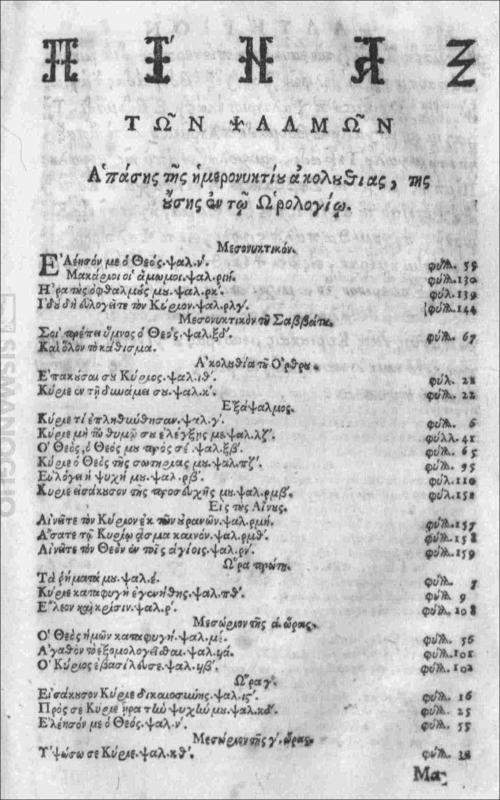 ΠΙΝΑΞ
ΤΩ῀Ν ΨΑΛΜΩ῀Ν
Ἁπάσης τῆς ἡμερονυκτίου ἀκολουθίας, τῆς
οὔσης ἐν τῷ Ὡρολογίῳ.
Μεσονυκτικόν.
Ἐλέησόν με ὁ Θεός. ψαλ. ν΄. φύλ. 55
Μακάριοι οἱ ἄμωμοι. ψαλ. ριή. φύλ. 130
Ἦρα τοὺς ὀφθαλμούς μου. ψαλ. ρκ΄. φύλ. 139
Ἰδοὺ δὴ εὐλογεῖτε τὸν Κύριον. ψαλ. ρλγ΄. φύλ. 144
Μεσονυκτικὸν τοῦ Σαββάτου.
Σοὶ πρέπει ὕμνος ὁ Θεός. ψαλ. ξδ΄. φύλ. 67
Καὶ ὅλον τὸ κάθισμα.
Ἀκολουθία τοῦ Ὄρθρου.
Ἐπακούσαι σου Κύριος. ψαλ. ιθ΄. φύλ. 21
Κύριε ἐν τῇ δυνάμει σου. ψαλ. κ΄. φύλ. 22
Ἑξάψαλμος.
Κύριε τί ἐπληθύνθησαν. ψαλ. γ΄. φύλ. 6
Κύριε μὴ τῷ θυμῷ σου ἐλέγξῃς με. ψαλ. λζ΄. φύλλ. 41
Ὁ Θεός, ὁ Θεός μου πρὸς σέ. ψαλ. ξβ΄. φύλ. 65
Κύριε ὁ Θεὸς τῆς σωτηρίας μου. ψαλ. πζ΄. φύλ. 95
Εὐλόγει ἡ ψυχή μου. ψαλ. ρβ΄. φύλ. 110
Κύριε εἰσάκουσον τῆς προσευχῆς μου. ψαλ. ρμβ΄. φύλ. 152
Εἰς τοὺς Αἴνους.
Αἰνεῖτε τὸν Κύριον ἐκ τῶν οὐρανῶν. ψαλ. ρμή. φύλ. 157
ᾌσατε τῷ Κυρίῳ ᾆσμα καινόν. ψαλ. ρμθ΄. φύλ. 158
Αἰνεῖτε τὸν Θεὸν ἐν τοῖς ἁγίοις. ψαλ. ρν΄. φύλ. 159
Ὥρα πρώτη.
Τὰ ῥήματά μου. ψαλ. έ. φύλ. 7
Κύριε καταφυγὴ ἐγενήθης. ψαλ. πθ΄. φύλ. 9
Ἔλεον καὶ κρίσιν. ψαλ. ρ΄. φύλ. 108
Μεσώριον τῆς ά. ὥρας.
Ὁ Θεὸς ἡμῶν καταφυγή. ψαλ. μέ. φύλ. 56
Ἀγαθὸν τὸ ἐξομολογεῖσθαι. ψαλ. ϟά. φύλ. 101
Ὁ Κύριος ἐβασίλευσε. ψαλ. ϟβ΄. φύλ. 102
Ὥρα γ΄.
Εἰσάκουσον Κύριε δικαιοσύνης. ψαλ. ις΄. φύλ. 16
Πρὸς σὲ Κύριε ἦρα τὴν ψυχήν μου. ψαλ. κδ΄. φύλ. 25
Ἐλέησόν με ὁ Θεός. ψαλ. ν΄. φύλ. 55
Μεσώριον τῆς γ΄. ὥρας.
Ὑψώσω σε Κύριε. ψαλ. κθ΄. φύλ.
Μα
SISMANOGLIO